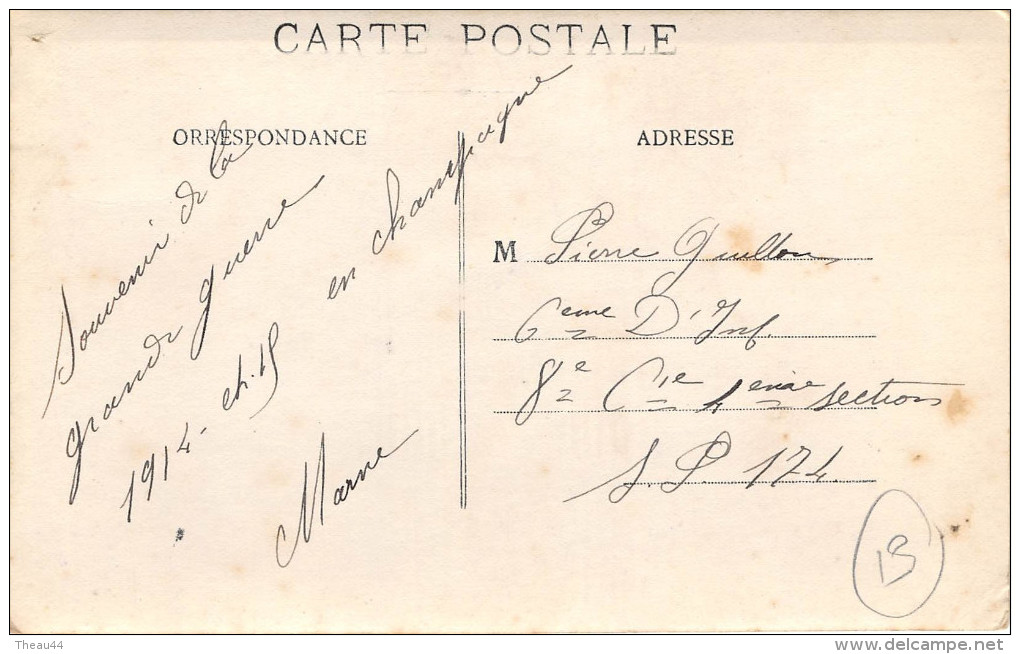 CARTE POSTALE
ORRESPONDANCE
Souvenir de la
grande guerre
1914- et 15 en champagne
Marne
ADRESSE
M Pierre Guillou
6eme D'Inf.
8e Cie 4eme section
S. P. 174.
15
Theau44
delcampe.net